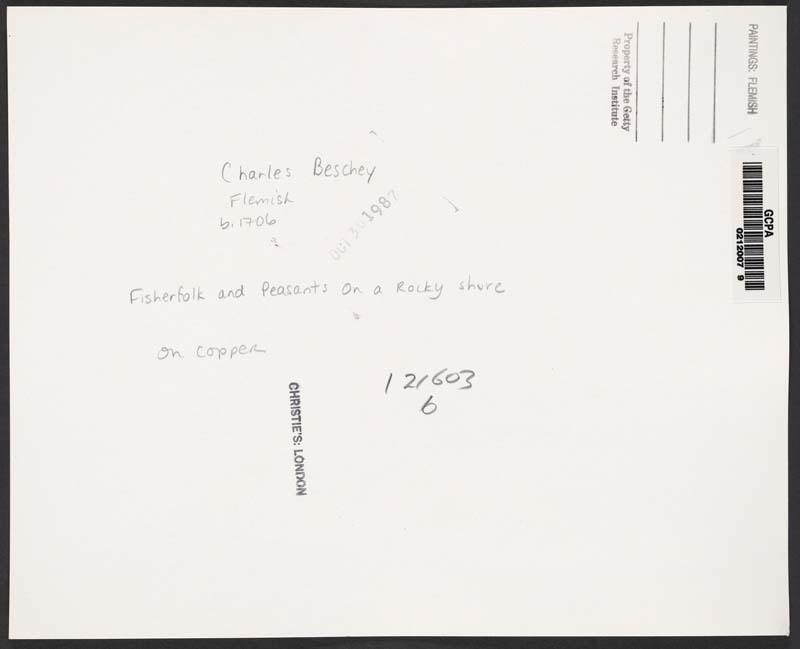 PAINTINGS: FLEMISH
Property of the Getty
Research Institute
GCPA
0212007 9
Charles Beschey
Flemish
b. 1706
OCT 30 1987
Fisherfolk and Peasants On a Rocky shore
on copper
121603
b
CHRISTIE'S: LONDON